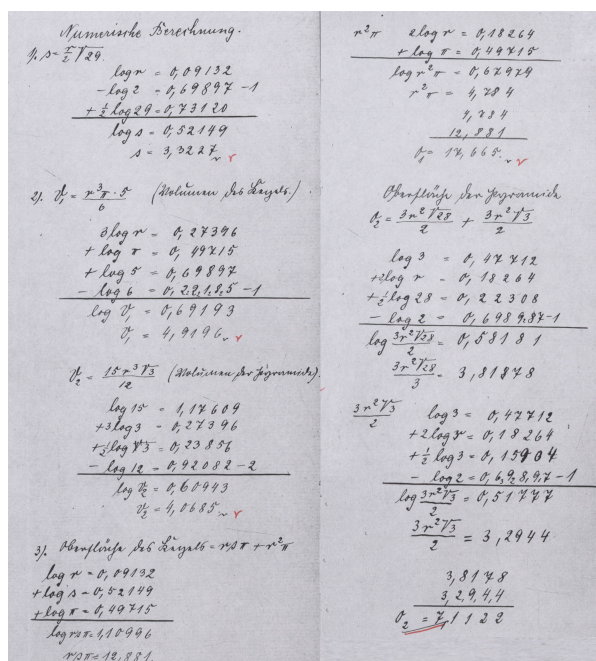 Numerische Berechnung.
1). s = r/2 √29.
log r = 0,09132
- log 2 = 0,69897-1
+ 1/2 log 29 = 0,73120
log s = 0,52149
s = 3,3227
2). V₁ = r³π·5/6 (Volumen des Kegels.)
3 log r = 0,27396
+ log π = 0,49715
+ log 5 = 0,69897
- log 6 = 0,22185-1
log V₁ = 0,69193
V₁ = 4,9196
V₂ = 15r³√3/12 (Volumen der Pyramide).
log 15 = 1,17609
+3 log 3 = 0,27396
+1/2 log √3 = 0,23856
- log 12 = 0,92082-2
log V₂ = 0,60943
V₂ = 4,0685
3). Oberfläche des Kegels = rsπ + r²π
log r = 0,09132
+ log s = 0,52149
+ log π = 0,49715
log rsπ = 1,10996
rsπ = 12,881.
r²π 2 log r = 0,18264
+ log π = 0,49715
log r²π = 0,67979
r²π = 4,784
4,784
12,881
O₁ = 17,665
Oberfläche der Pyramide
O₂ = 3r²√28/2 + 3r²√3/2
log 3 = 0,47712
+2 log r = 0,18264
+1/2 log 28 = 0,22308
- log 2 = 0,69897-1
log 3r²√28/2 = 0,58181
3r²√28/3 = 3,81878
3r²√3/2 log 3 = 0,47712
+2 log r = 0,18264
+1/2 log 3 = 0,15904
- log 2 = 0,69897-1
log 3r²√3/2 = 0,51777
3r²√3/2 = 3,2944
3,8178
3,2944
O₂ = 7,1122